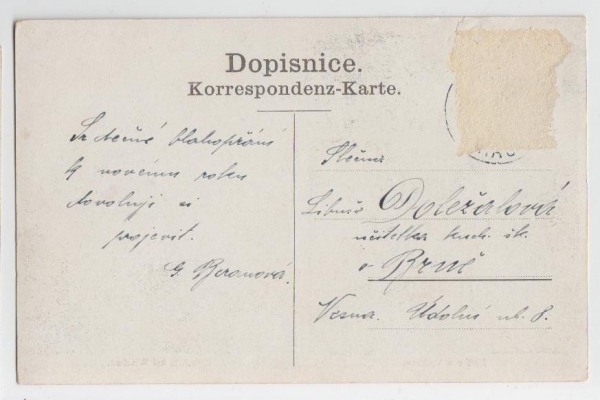 Dopisnice.
Korrespondenz-Karte.
Srdečné blahopřání
k novému roku
dovoluji si
projevit.
G. Beranová.
Slečna
Libuše Doležalová
učitelka kuch. šk.
v Brně
Vesna. Údolní ul. 8.